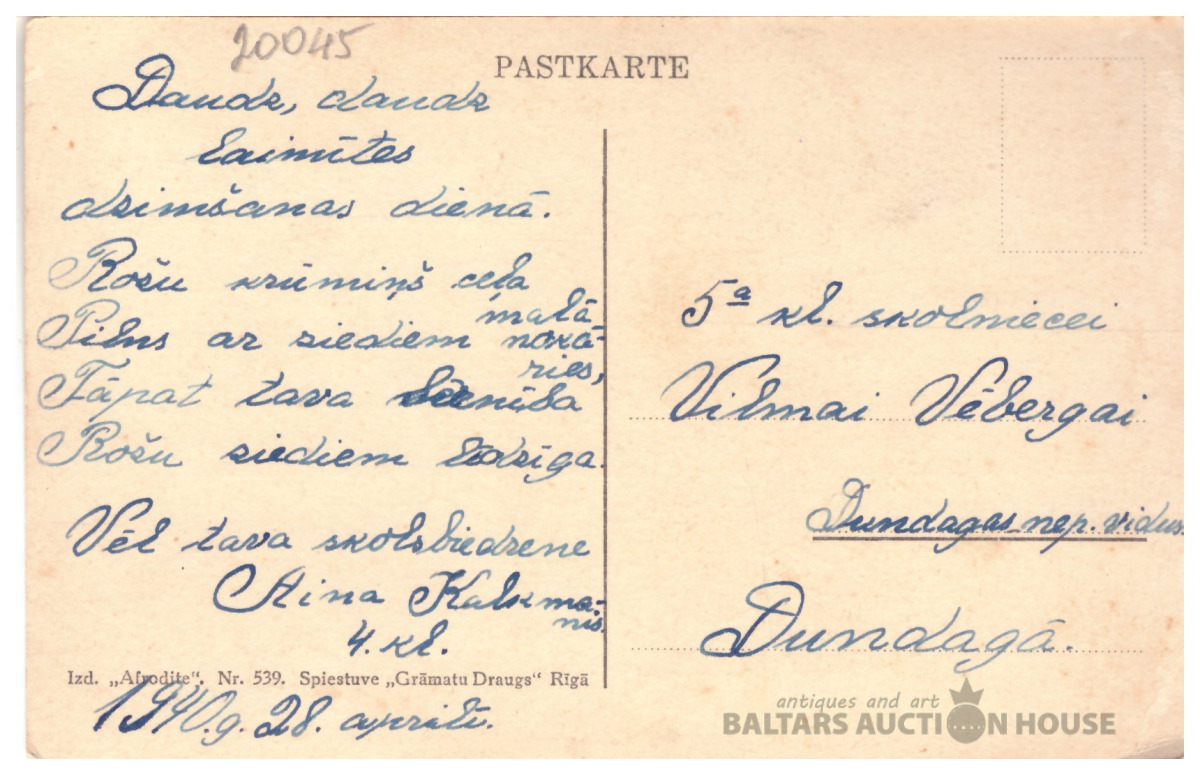 20045
PASTKARTE
Daudz, daudz
laimītes
dzimšanas dienā.
Rožu krūmiņš ceļa
malā
Pilns ar ziediem nokā-
ries,
Tāpat tava
Rožu ziediem līdzīga.
Vēl tava skolsbiedrene
Aina Kalkma-
nis.
4. kl.
Izd. „Afrodite“. Nr. 539. Spiestuve „Grāmatu Draugs“ Rīgā
1940.g. 28. aprīlī.
5ª kl. skolniecei
Vilmai Vēbergai
Dundagas nep. vidus.
Dundagā.
antiques and art
BALTARS AUCTION HOUSE